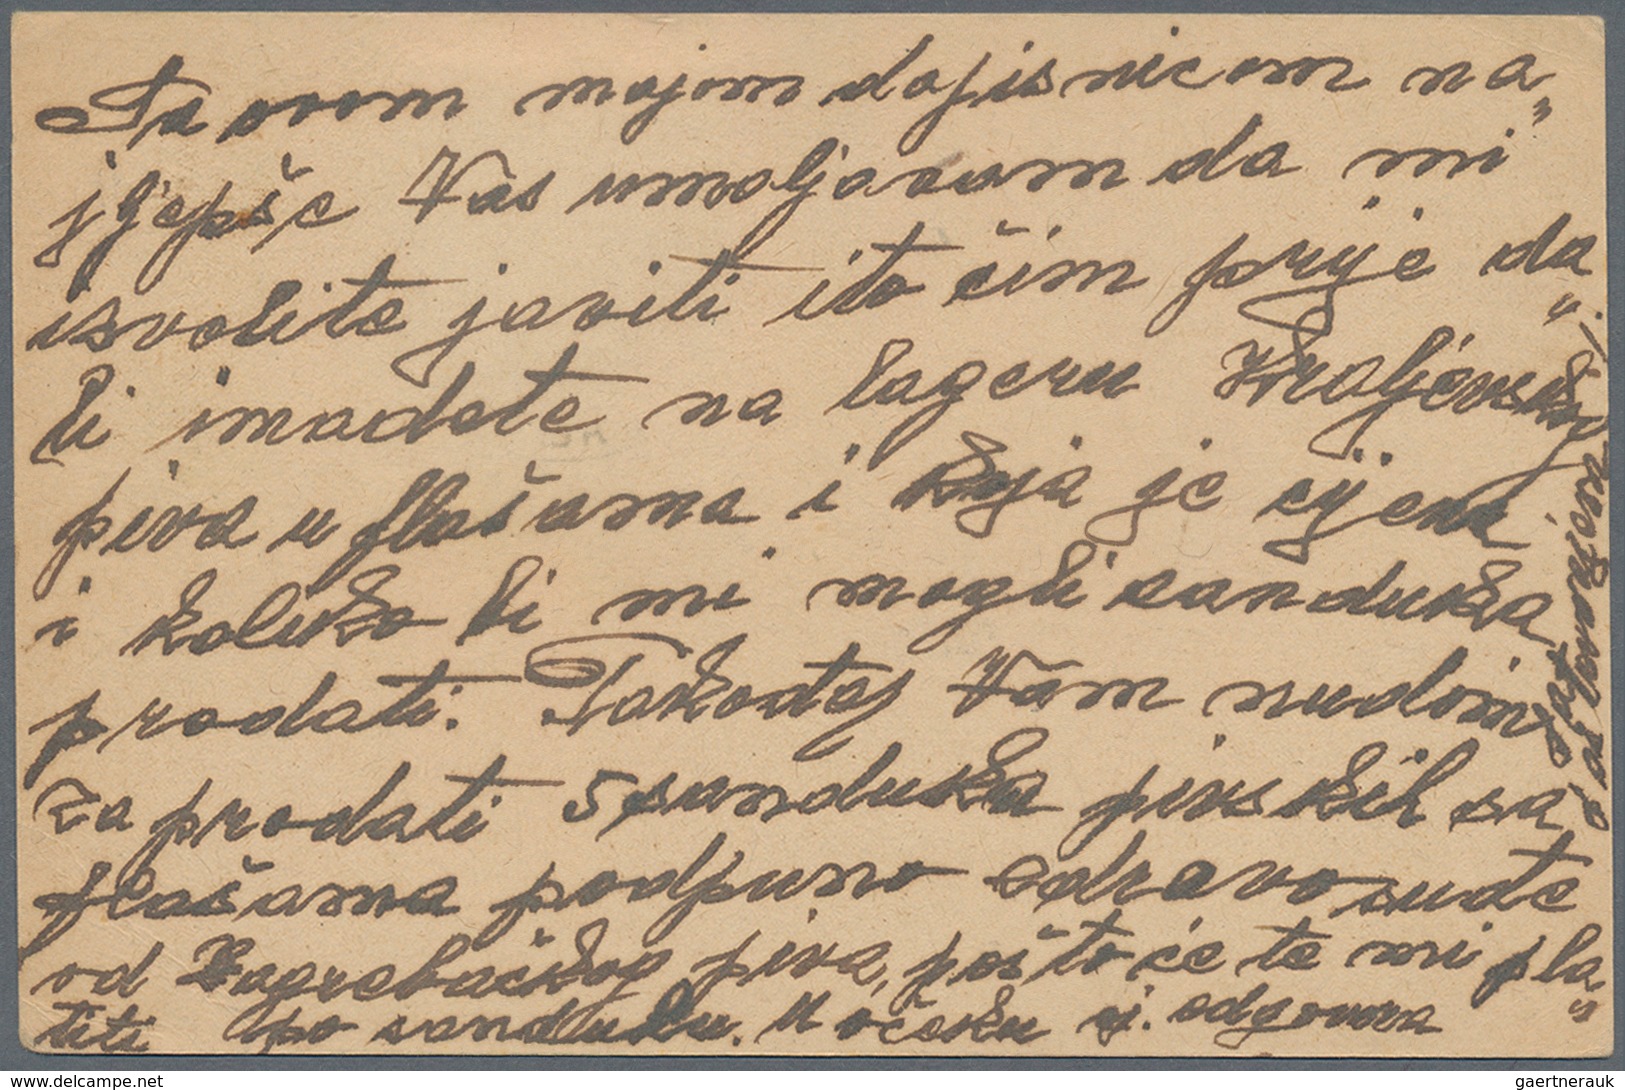 Sa ovom mojom dopisnicom na„
jljepše Vas umoljavam da mi
isvolite javiti i to čim prije da„
li imadete na lageru Kraljevskog
piva u flašama i koja je cijena
i koliko bi mi mogli sanduka
prodati. Takođaj Vam nudim
za prodati 5 sanduka pivskih sa
flašama podpuno zdravo suđe
od Zagrebačkog piva, pošto će te mi pla„
titi po sanduku. U očeku cj. odgovora
poštovanjem
delcampe.net
gaertnerauk